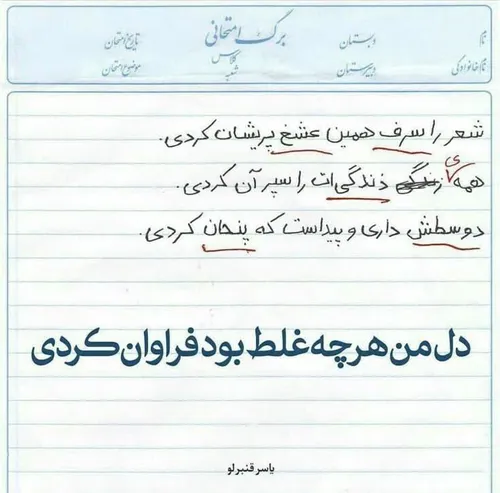 برگ امتحانی
نام دبستان کلاس تاریخ امتحان
نام خانوادگی دبیرستان شعبه موضوع امتحان
شعر را سرف همین عشغ پریشان کردی.
همه ی ذندگی ات را سپر آن کردی.
دوسطش داری و پیداست که پنحان کردی.
دل من هرچه غلط بود فراوان کردی
یاسر قنبرلو